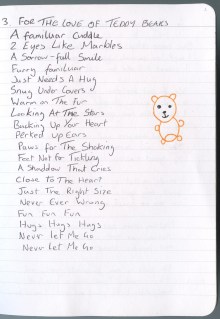 3. FOR THE LOVE OF TEDDY BEARS
A familuar Cuddle
2 Eyes Like Marbles
A Sorrow-full Smile
Furry familuar
Just Needs A Hug
Snug Under Covers
Warm on The Fur
Looking At The Stars
Backing Up Your Heart
Perked up Ears
Paws for The Shaking
Feet Not for Tickling
A Shaddow That Cries
Close to The Heart
Just The Right Size
Never Ever Wrong
Fun Fun Fun
Hugs Hugs Hugs
Never Let Me Go
Never Let Me Go